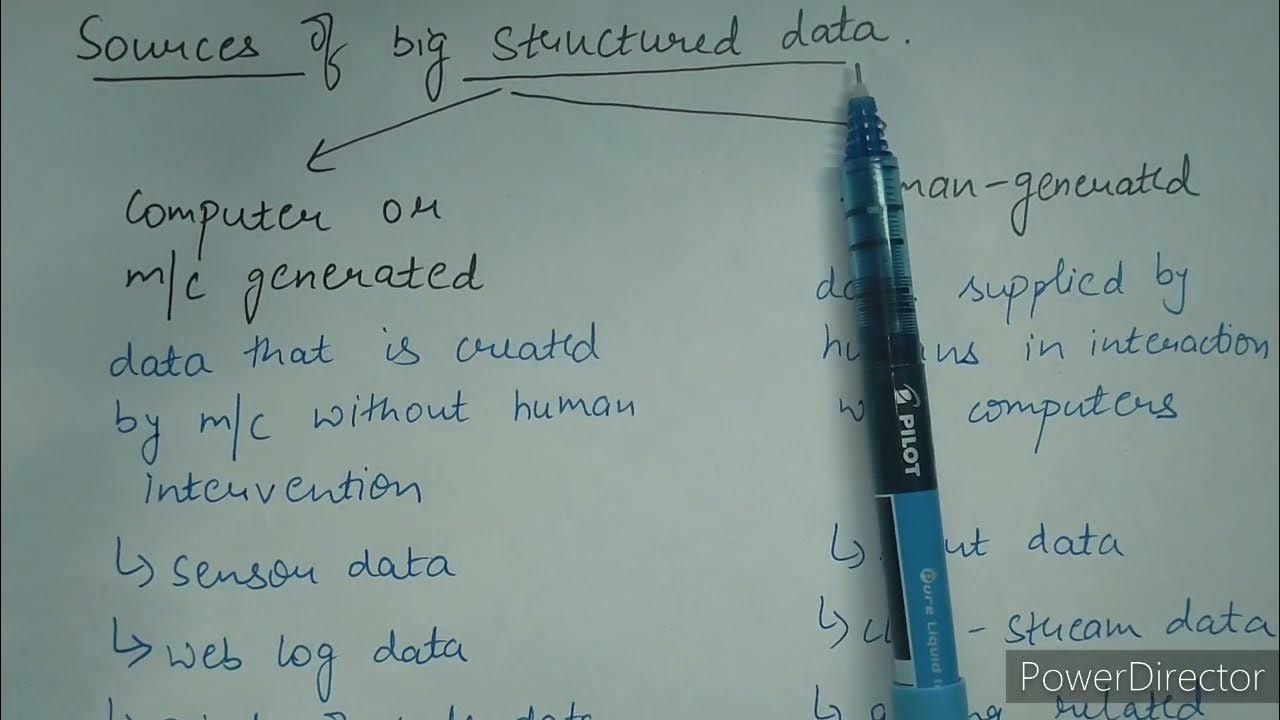 Sources of big structured data.
Computer or
m/c generated
data that is created
by m/c without human
intervention
↳ sensor data
↳ web log data
data
man-generated
supplied by
in interaction
computers
↳ data
↳ - stream data
↳ related
PILOT
Pure Liquid
PowerDirector